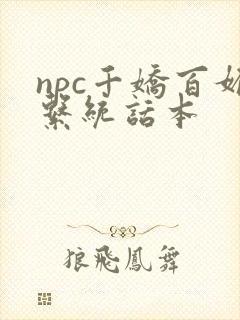 npc千嬌百媚
繫統話本
狼飛鳳舞